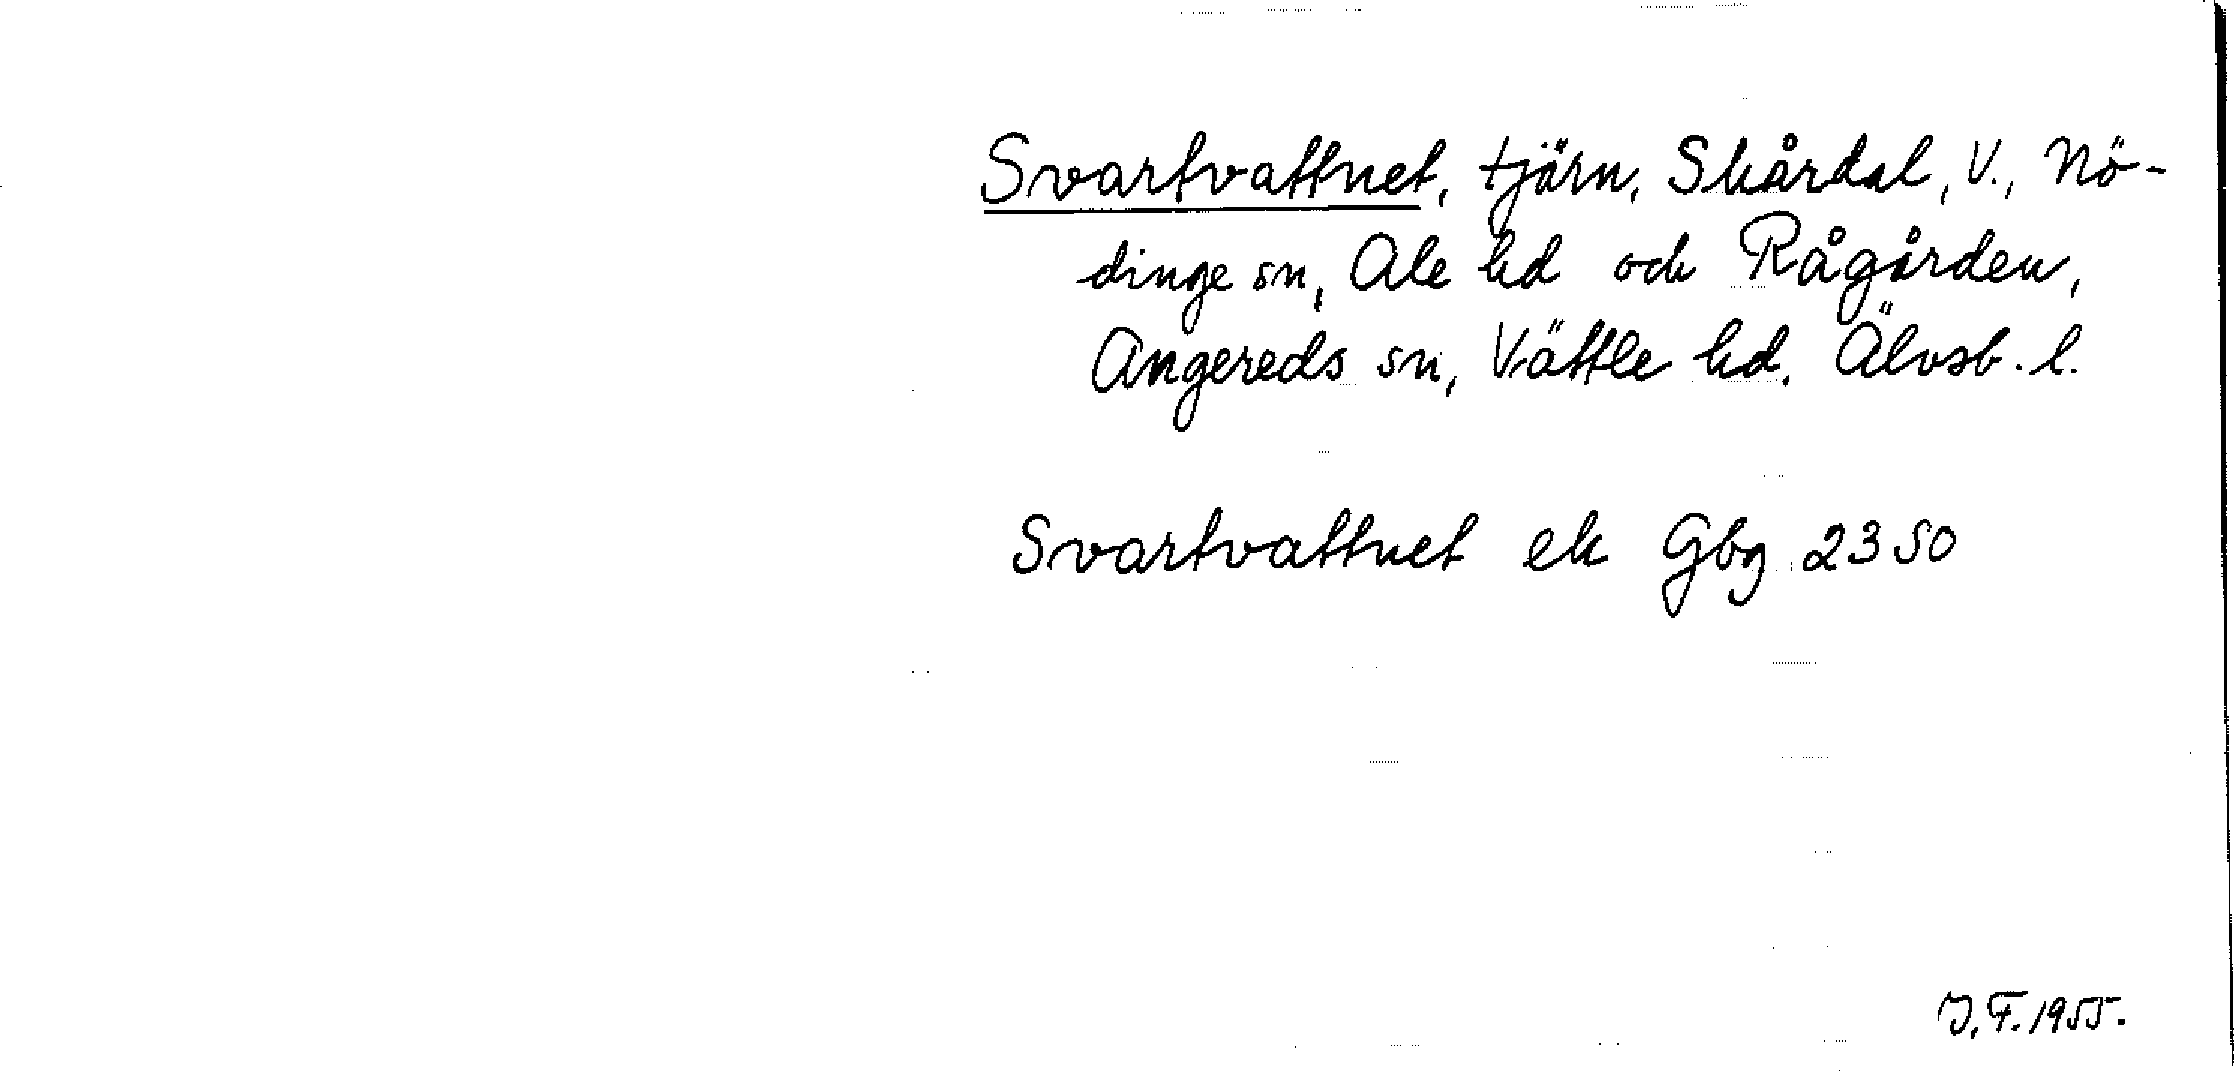 Svartvattnet, tjärn, Skårdal, V., Nö-
dinge sn, Ale hd och Rågården,
Angereds sn, Vättle hd. Älvsb. l.
Svartvattnet ek Gbg 2350
J. F. 1955.